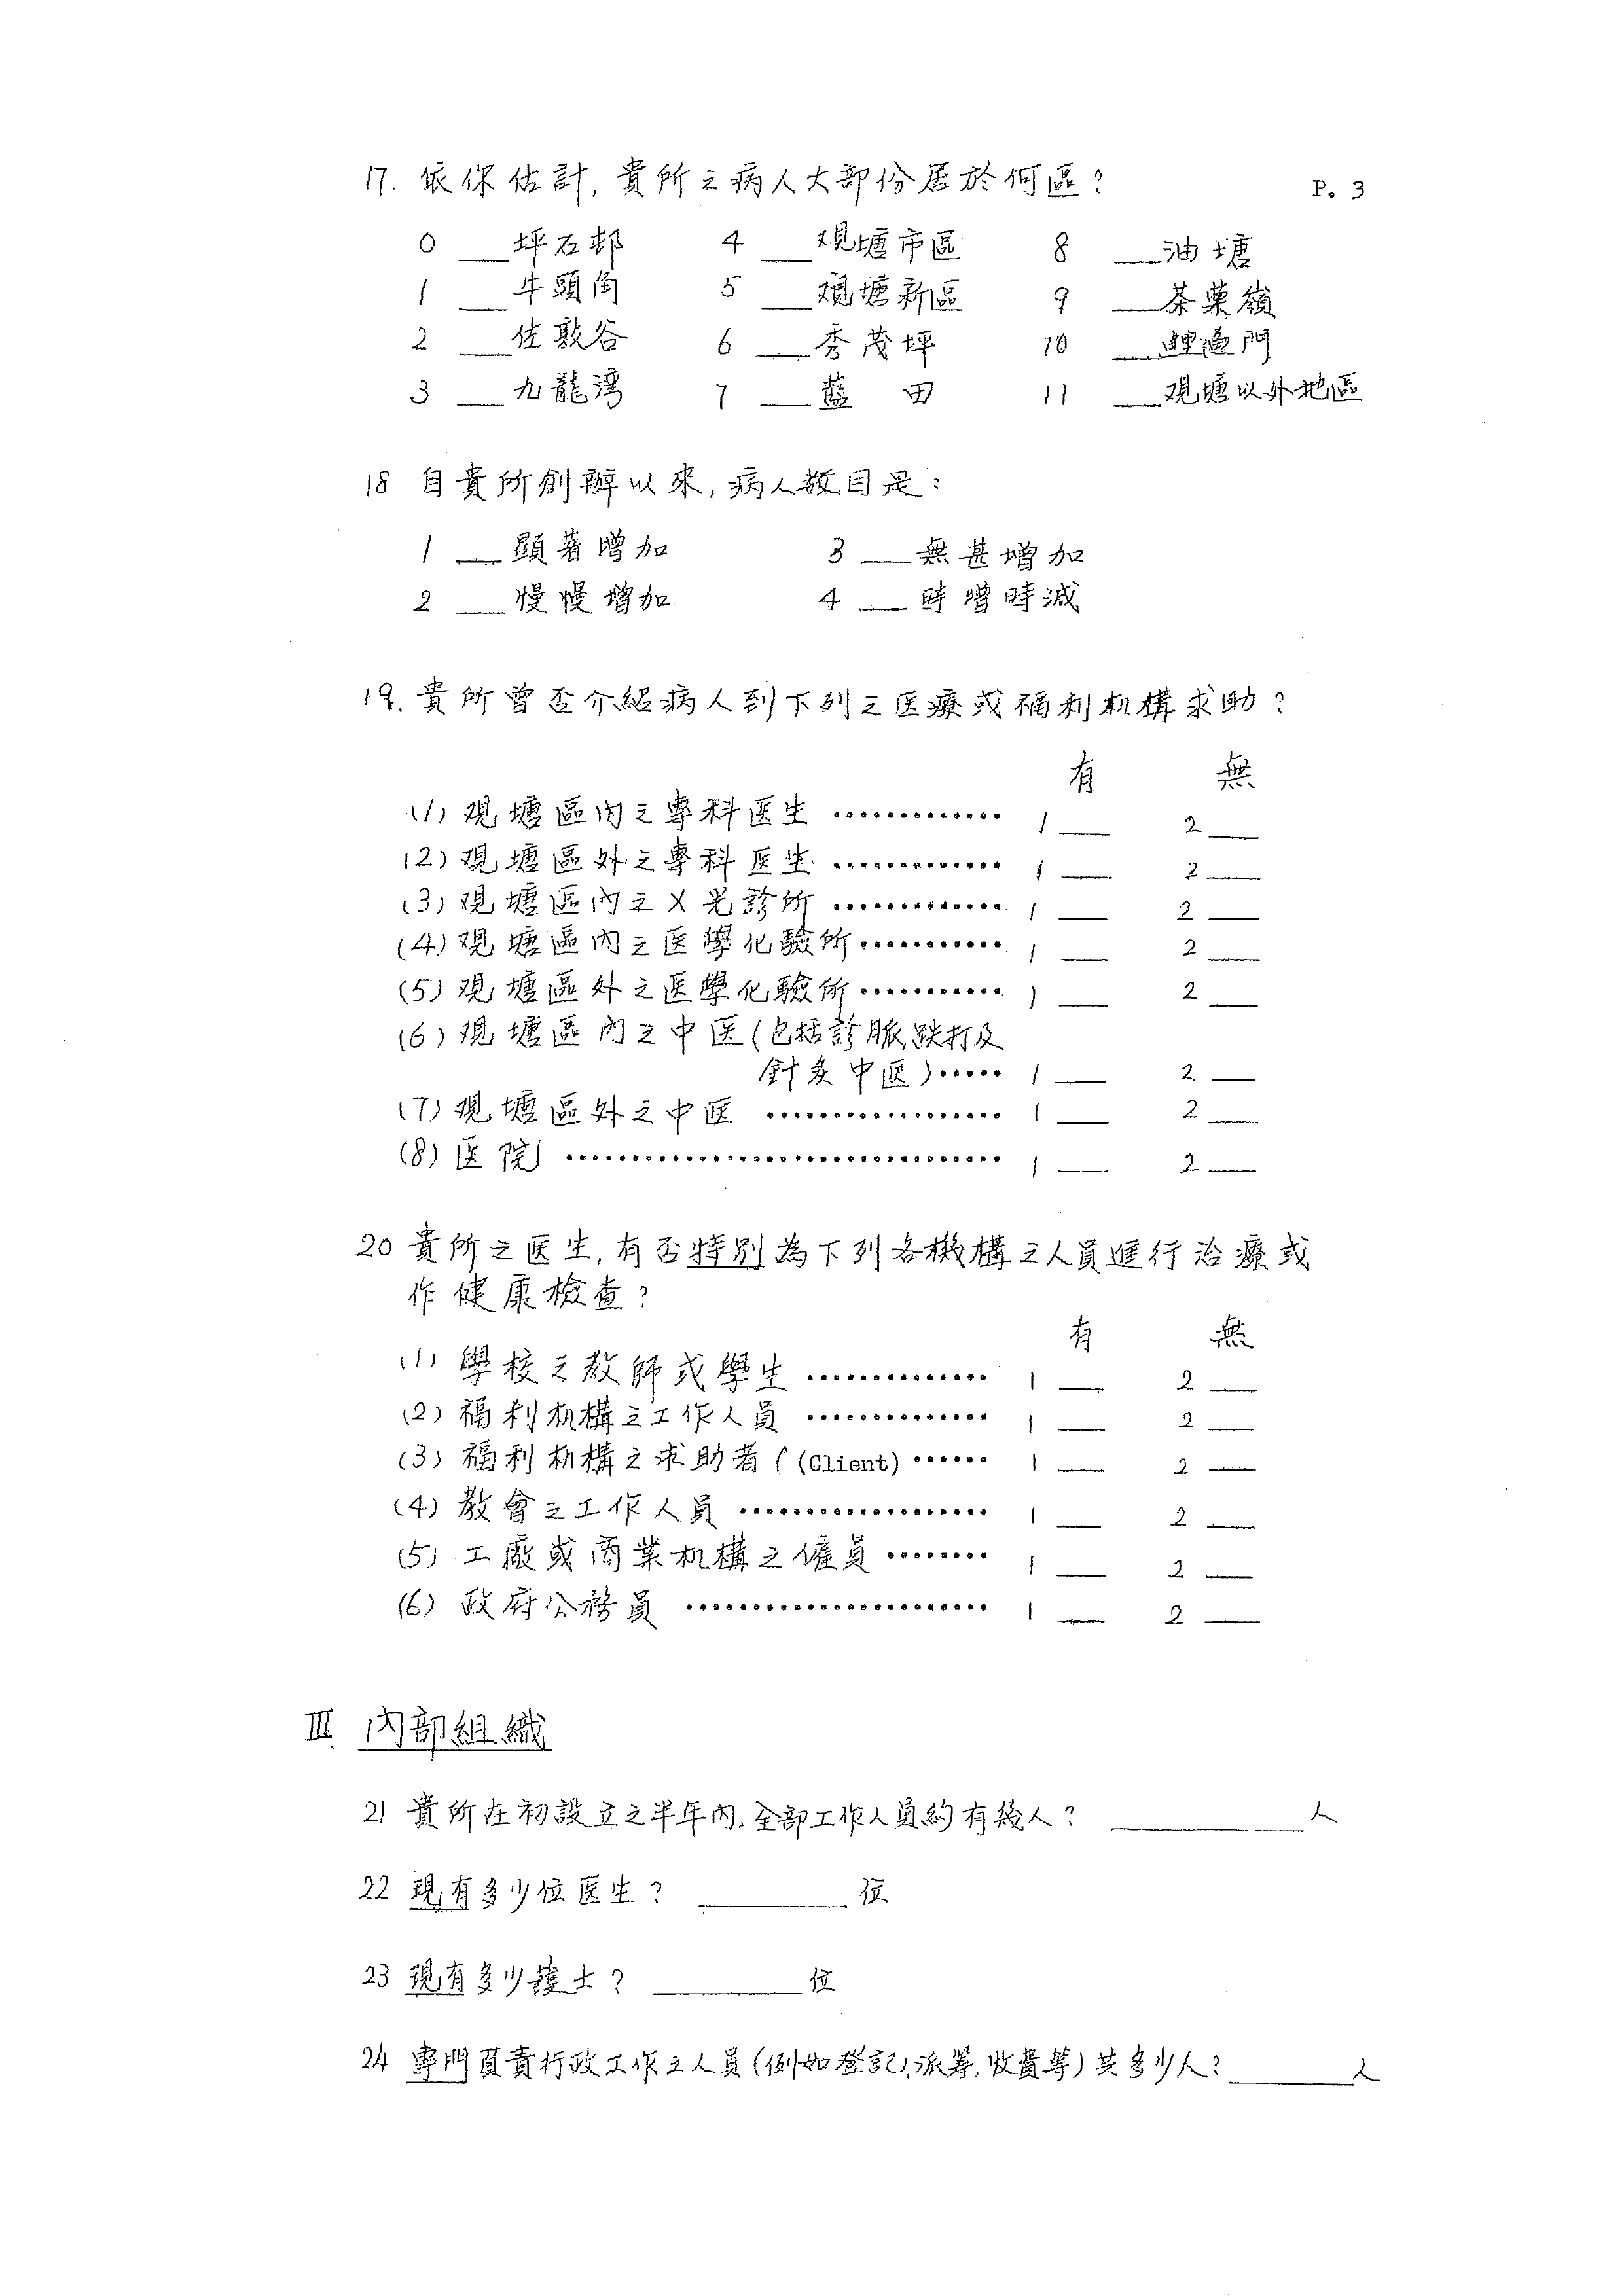 17. 依你估計, 貴所之病人大部份居於何區? P. 3
0 ___坪石邨 4 ___观塘市區 8 ___油塘
1 ___牛頭角 5 ___观塘新區 9 ___茶菓嶺
2 ___佐敦谷 6 ___秀茂坪 10 ___鯉魚門
3 ___九龍湾 7 ___藍 田 11 ___观塘以外地區
18 自貴所創辦以來, 病人數目是:
1 ___顕著增加 3 ___無甚增加
2 ___慢慢增加 4 ___時增時減
19. 貴所曾否介紹病人到下列之医療或福利机構求助?
有 無
(1) 观塘區內之專科医生 ............. 1 ___ 2 ___
(2) 观塘區外之專科医生 ............. 1 ___ 2 ___
(3) 观塘區內之X光診所 ............. 1 ___ 2 ___
(4) 观塘區內之医學化驗所 ........... 1 ___ 2 ___
(5) 观塘區外之医學化驗所 ........... 1 ___ 2 ___
(6) 观塘區內之中医(包括診脈,跌打及
針灸中医) ..... 1 ___ 2 ___
(7) 观塘區外之中医 .................. 1 ___ 2 ___
(8) 医院 ................................. 1 ___ 2 ___
20 貴所之医生, 有否特別為下列各機構之人員進行治療或
作健康檢查?
有 無
(1) 學校之教師或學生 .............. 1 ___ 2 ___
(2) 福利机構之工作人員 .............. 1 ___ 2 ___
(3) 福利机構之求助者 ((Client) ...... 1 ___ 2 ___
(4) 教會之工作人員 ................... 1 ___ 2 ___
(5) 工廠或商業机構之僱員 ........ 1 ___ 2 ___
(6) 政府公務員 ....................... 1 ___ 2 ___
III. 內部組織
21 貴所在初設立之半年內, 全部工作人員約有幾人? __________人
22 現有多少位医生? ________位
23 現有多少護士? ________位
24 專門負責行政工作之人員(例如登記,派籌,收費等)共多少人?_______人